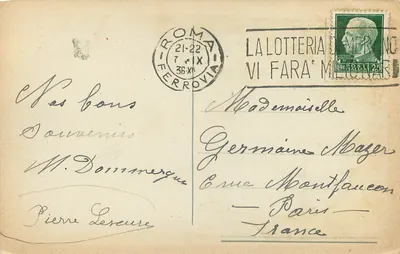 ROMA
21-22
IX
36 XIV
FERROVIA
LA LOTTERIA DI MERANO
VI FARA' MILIONARI
Nos bons
Souvenirs
M. Dommergue
Pierre Lescure
Mademoiselle
Germaine Mazer
Montfaucon
Paris
France